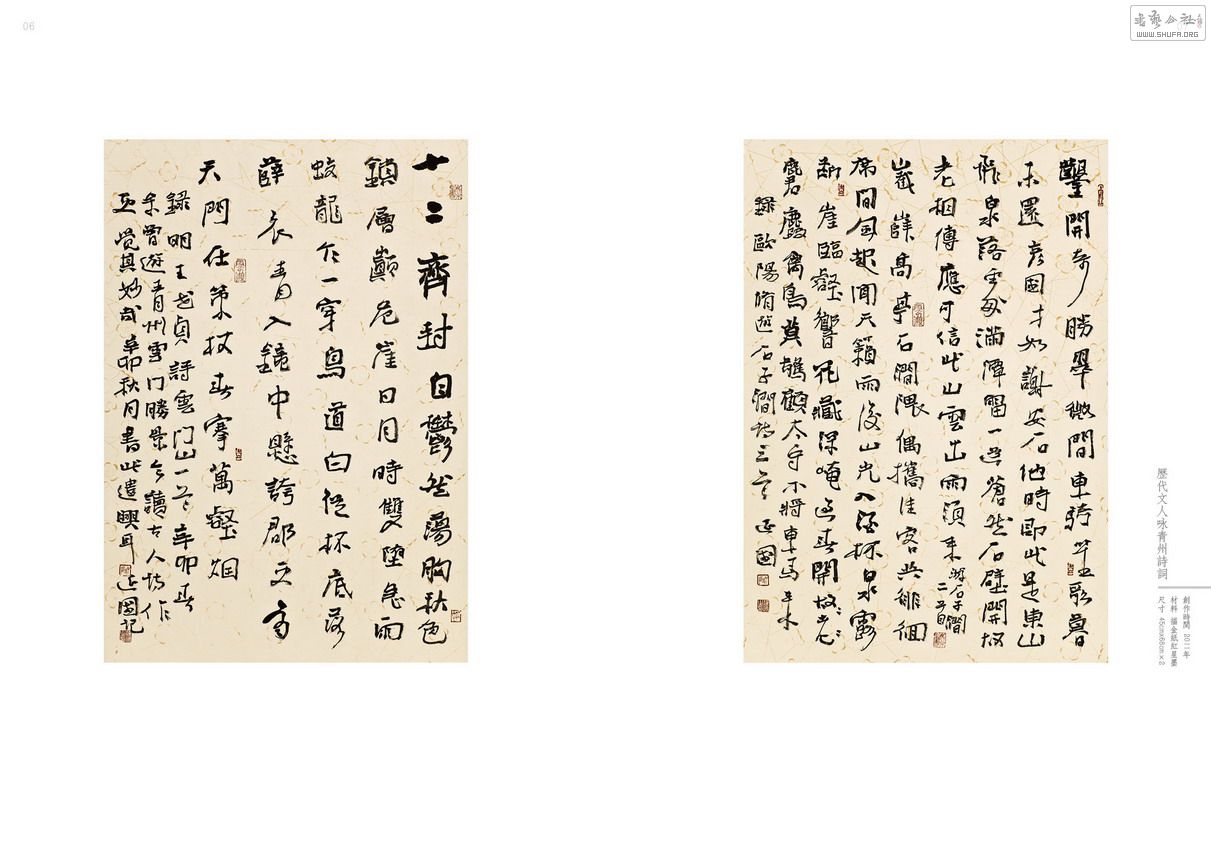 06
書藝公社
WWW.SHUFA.ORG
鑿開奇勝翠微間車騎笙歌暮
未還彥國才如謝安石他時即此是東山
飛泉落空勢滿潭留一送蒼然石壁開
老相傳應可信此山雲出雨須來 游石子澗
二首
巖嶂高亭石澗隈偶攜佳客共徘徊
席間風起聞天籟雨後山光入酒杯泉落
斷崖臨壑響花藏深崦過春開
麕麚禽鳥莫驚顧太守不將車馬來
錄歐陽脩遊石子澗詩三首 延國
十二齊封自鬱然蕩胸秋色
鎮層巔危崖日月時雙墮急雨
蛟龍下一穿鳥道白從杯底落
薜衣青入鏡中懸誇郡文
天門仗策杖春寥萬壑烟
錄明王世貞詩雲門山一首辛卯春
余曾遊青州雲門勝景今讀古人詩作
更覺其妙哉辛卯秋月書此遣興耳 延國記
歷代文人咏青州詩詞
創作時間 2011年
材料 描金紙紅星墨
尺寸 45cm×68cm×2